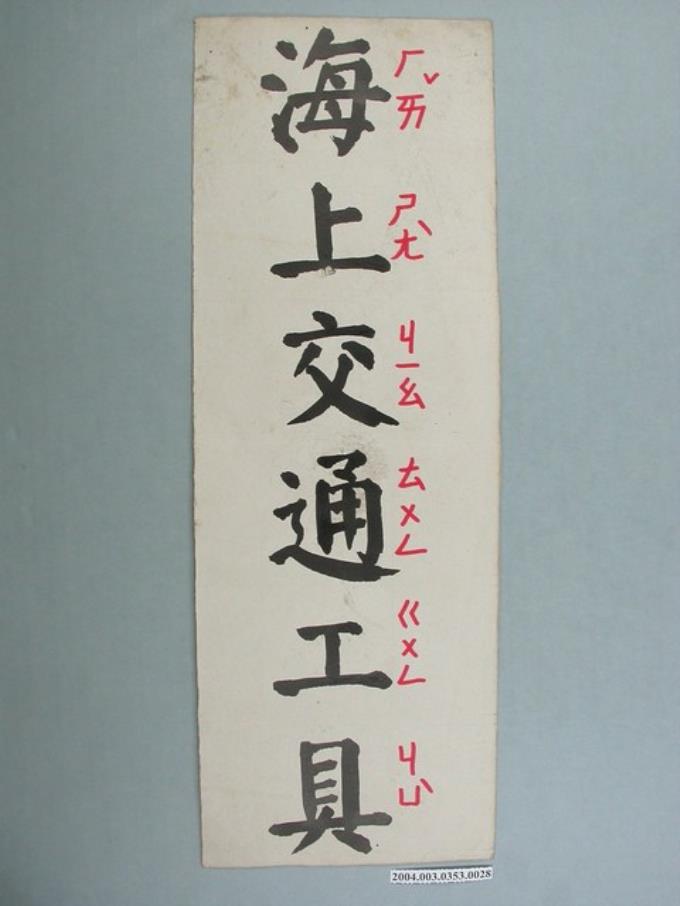 海上交通工具
ㄏㄞˇ ㄕㄤˋ ㄐㄧㄠ ㄊㄨㄥ ㄍㄨㄥ ㄐㄩˋ
2004.003.0353.0028